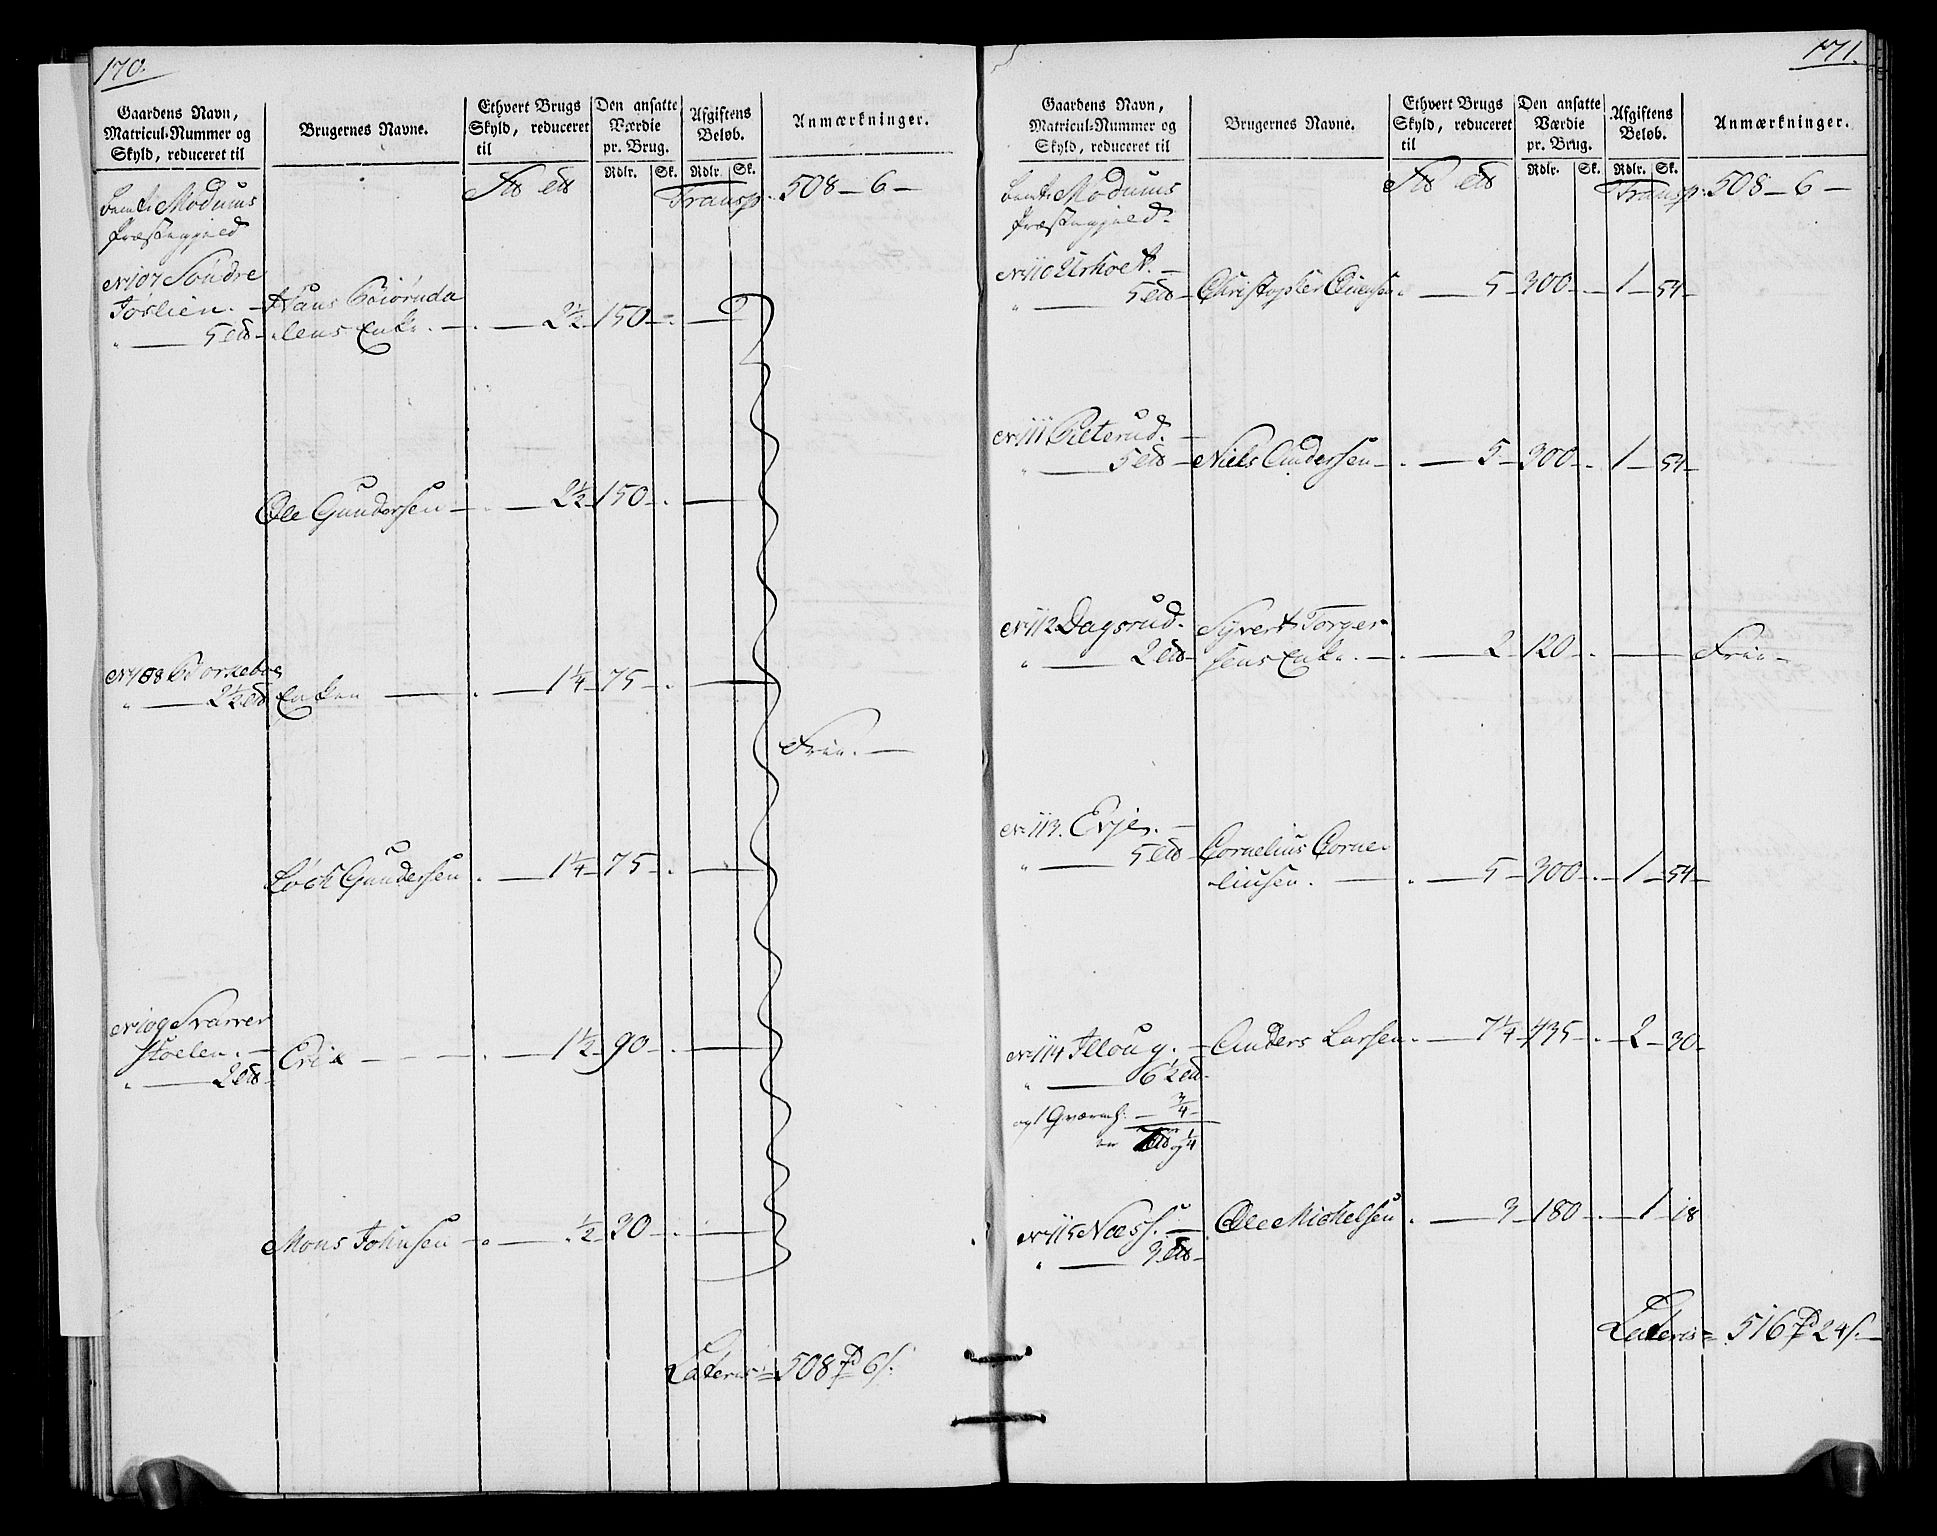 170.
Gaardens Navn,
Matricul-Nummer og
Skyld, reduceret til
Brugernes Navne.
Ethvert Brugs
Skyld, reduceret
til
Den ansatte
Værdie
pr. Brug.
Rdlr. Sk.
Afgiftens
Beløb.
Rdlr. Sk.
Anmærkninger.
Modums
Præstegjeld
Transp. 508 - 6 -
No 107 Søndre
Hans
5 - lens Enke. - 2½ 150 -
Ole Gundersen - 2½ 150 -
No 108
2½ Enken - 1¼ 75 -
Frie. -
Gundersen - 1¼ 75 -
No 109
støelen. -
2 Eric - 1½ 90 -
Mons Johnsen - ½ 30 -
Lateris = 508 6
171.
Gaardens Navn,
Matricul-Nummer og
Skyld, reduceret til
Brugernes Navne.
Ethvert Brugs
Skyld, reduceret
til
Den ansatte
Værdie
pr. Brug.
Rdlr. Sk.
Afgiftens
Beløb.
Rdlr. Sk.
Anmærkninger.
Modums
Præstegjeld.
Transp. 508 - 6 -
No 110
5 Christopher - 5 - 300 - 1 - 54 -
No 111
5 Niels Andersen - 5 - 300 - 1 - 54 -
No 112 Dagsrud. Syvert Torger-
2 sens Enke. - 2 - 120 - Frie -
No 113. Evje. -
5 Cornelius Corne-
liusen. - 5 - 300 - 1 - 54 -
No 114 Anders Larsen - 7¼ - 435 - 2 - 30 -
6½
og 1 ¾
er 7 og ¼
No 115 Næss. - Ole Michelsen - 3 - 180 - 1 - 18
3
Lateris = 516 24